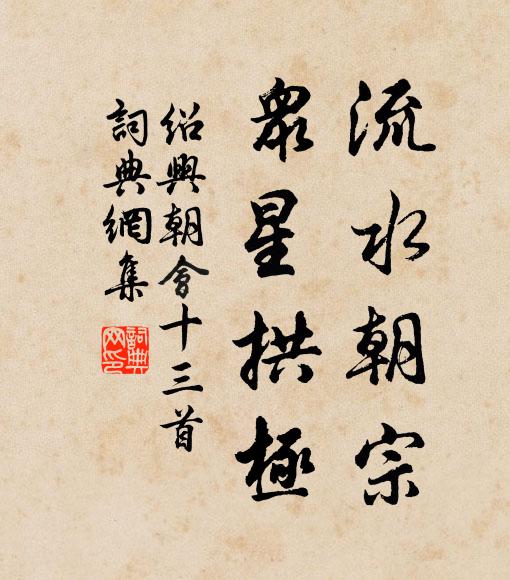 流水朝宗
眾星拱極
紹興朝會十三首
詞典網集
詞典网印